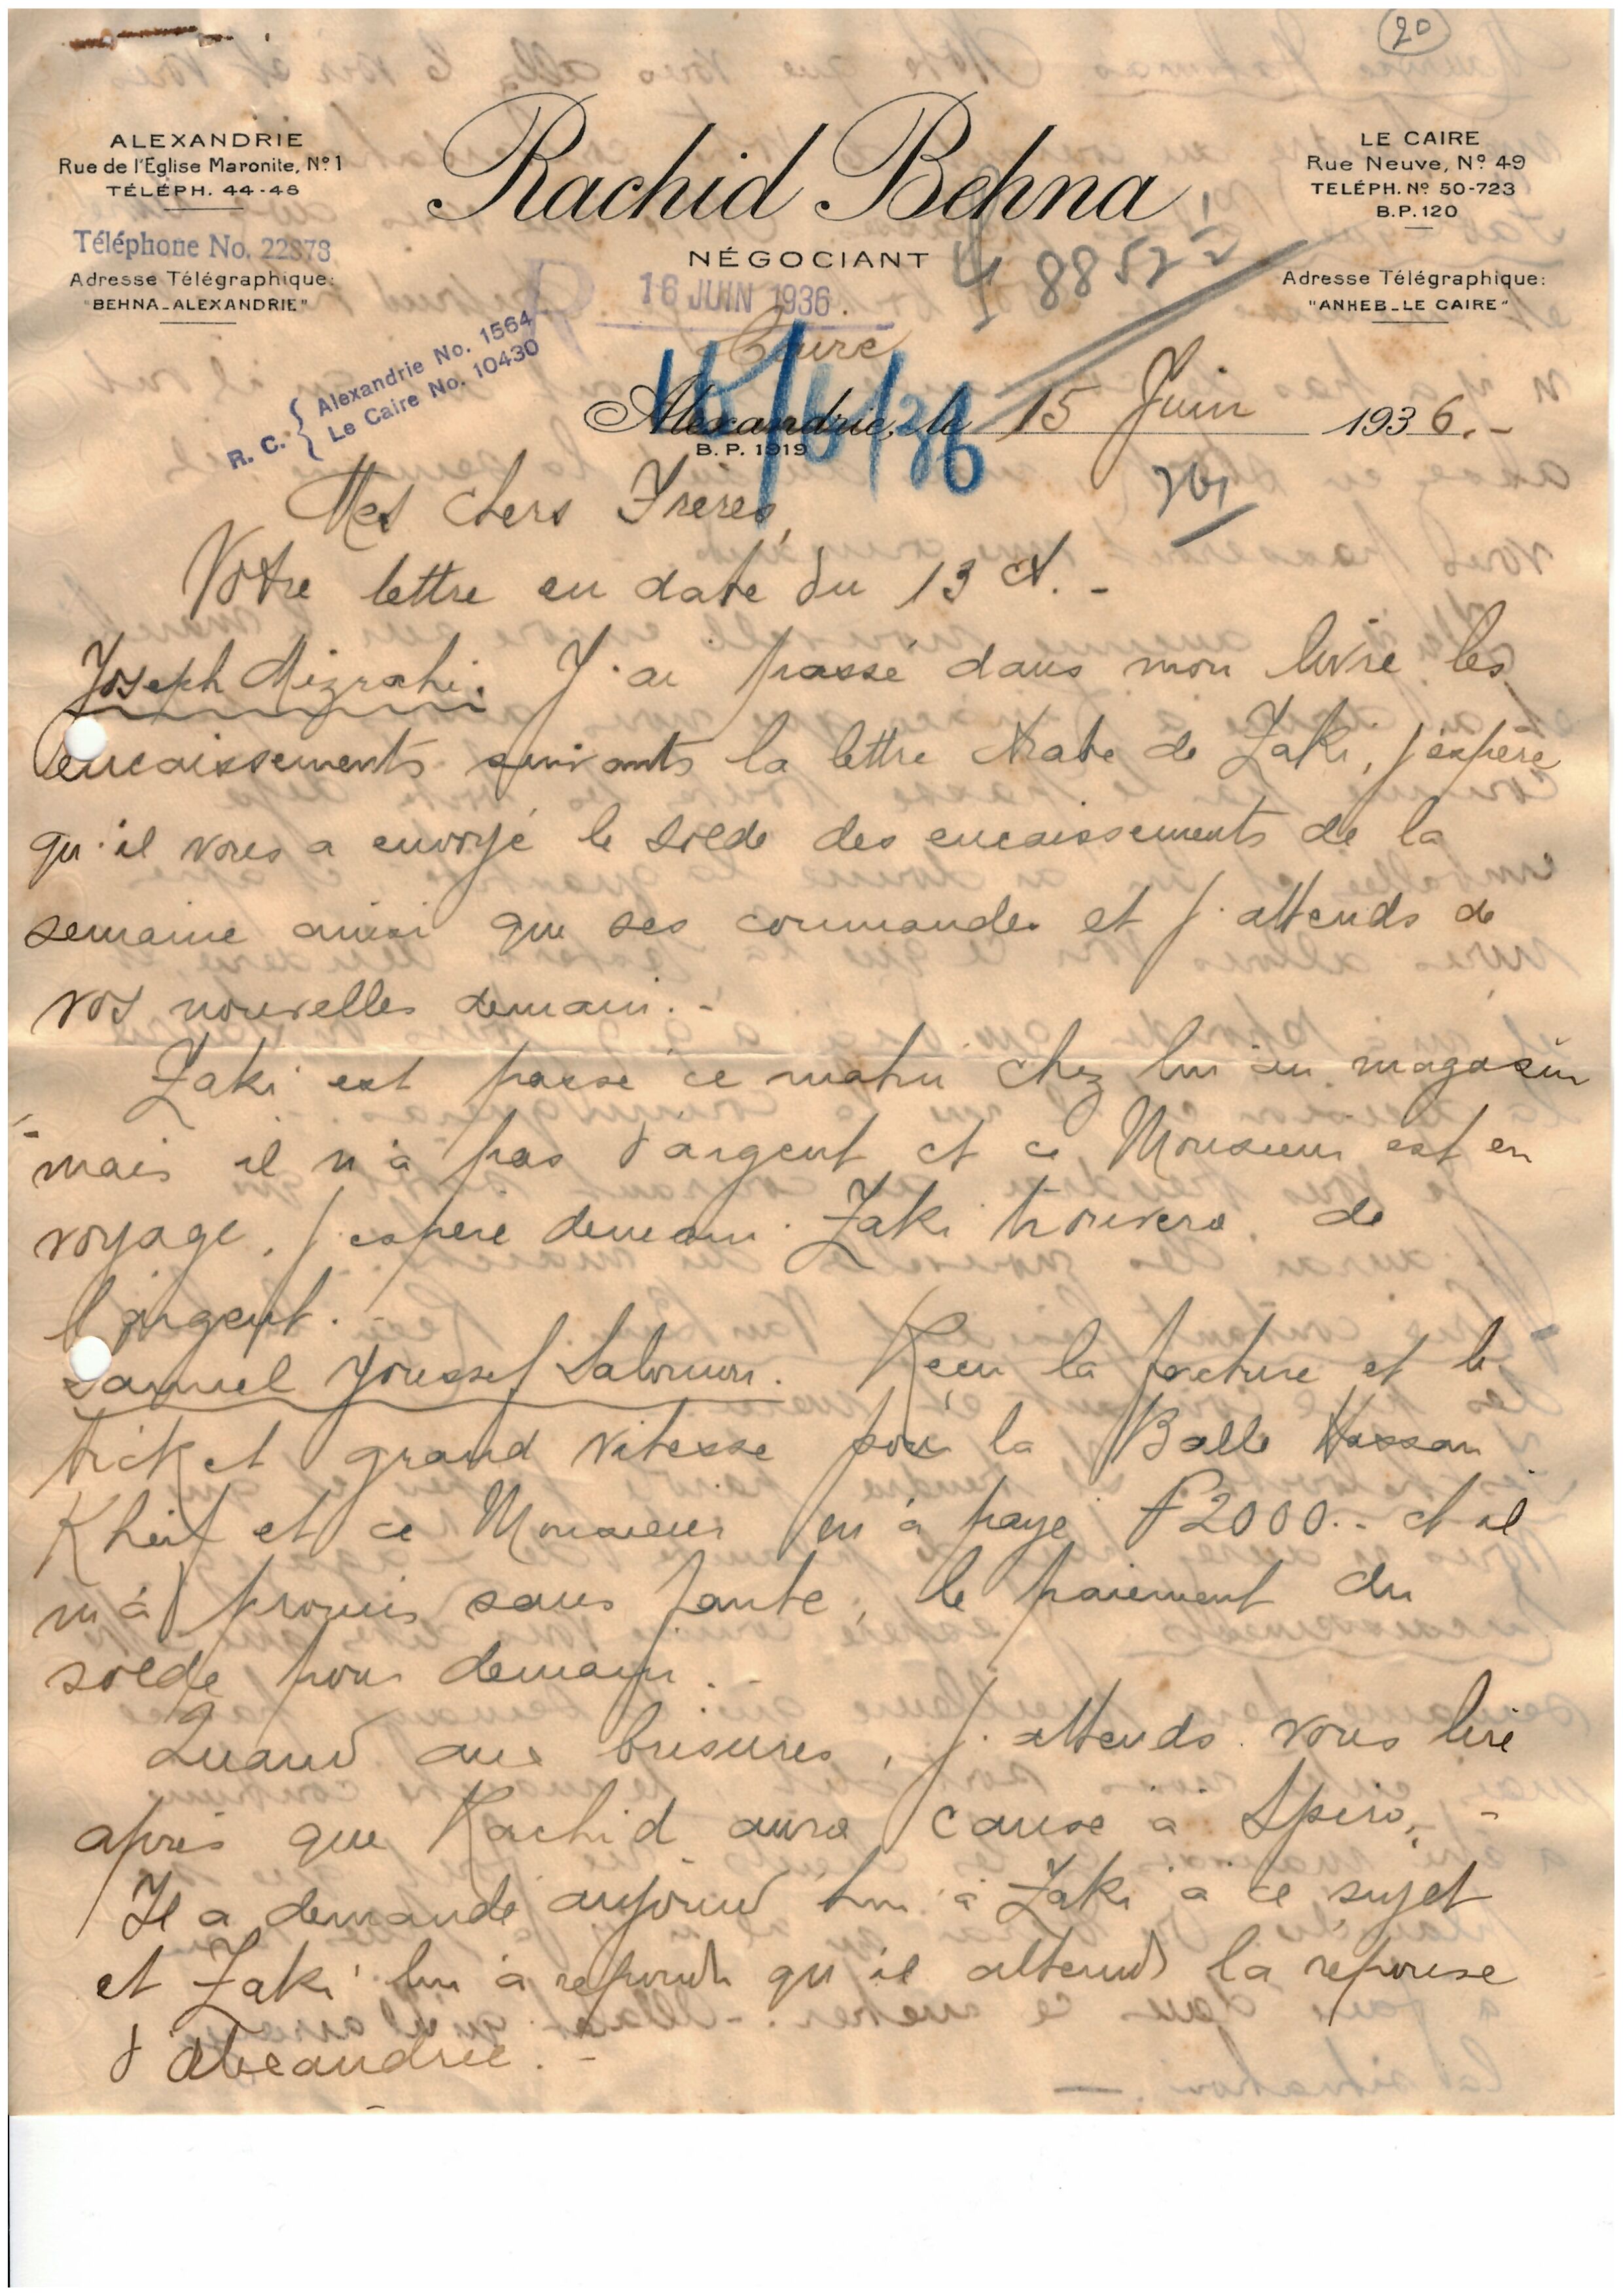 20
ALEXANDRIE
Rue de l'Eglise Maronite, Nº 1
TÉLÉPH. 44-48
Téléphone No. 22878
Adresse Télégraphique:
"BEHNA_ALEXANDRIE"
Rachid Behna
NÉGOCIANT
LE CAIRE
Rue Neuve, Nº 49
TELÉPH. Nº 50-723
B.P. 120
Adresse Télégraphique:
"ANHEB_LE CAIRE"
R
16 JUIN 1936.
R. C. { Alexandrie No. 1564
Le Caire No. 10430
Caire
Alexandrie, le 15 Juin 1936.-
B. P. 1919
16/6/36
Mes chers Freres,
Votre lettre en date du 13 ct. -
Joseph Mizrahi. J'ai passé dans mon livre les
encaissements suivants la lettre Arabe de Zaki, j'espère
qu'il vous a envoyé le solde des encaissements de la
semaine ainsi que ses commandes et j'attends de
vos nouvelles demain. -
Zaki est passé ce matin chez lui au magasin
mais il n'a pas d'argent et ce Monsieur est en
voyage, j'espere demain Zaki trouvera de
l'argent.
Samuel Youssef Salomon. Recu la facture et le
ticket grand vitesse pour la Balle Hassan
Kheif et ce Monsieur m'a payé P2000.- et il
m'a promis sans faute, le paiement du
solde pour demain. -
Quand aux brisures, j'attends vous lire
après que Rachid aura causé à Spiro, -
Il a demandé aujourd'hui à Zaki à ce sujet
et Zaki lui a repondu qu'il attend la réponse
d'Alexandrie. -